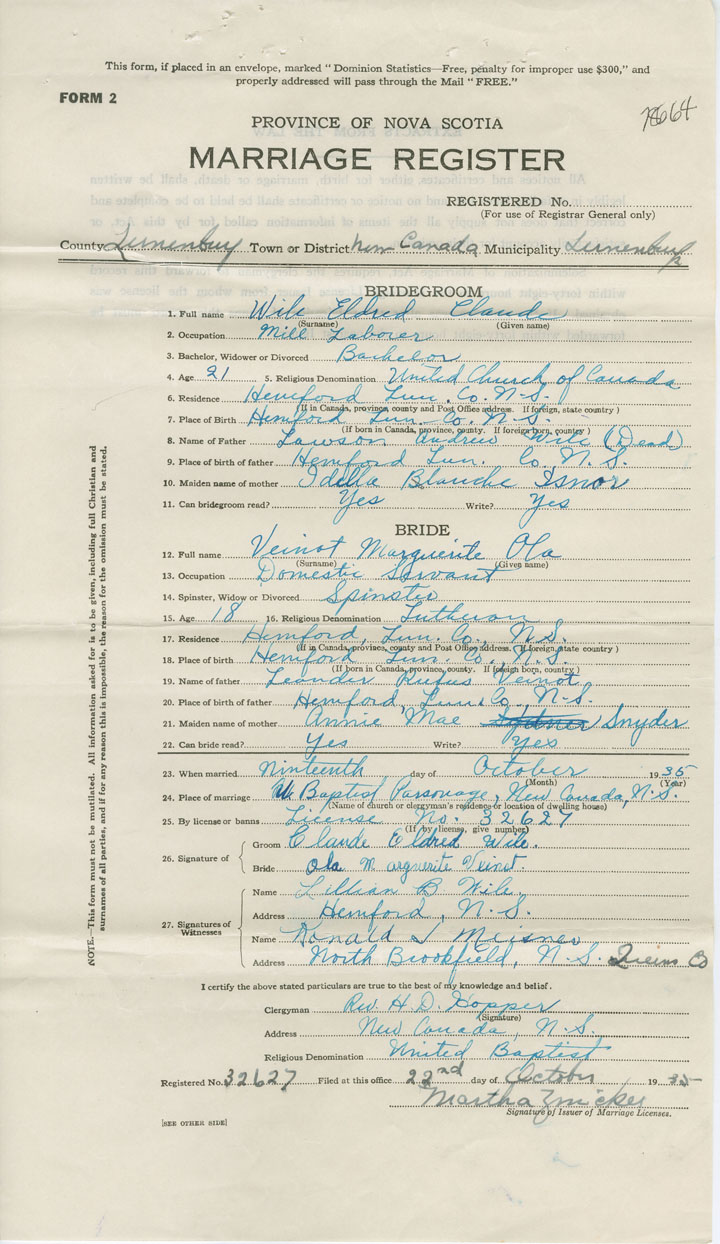 This form, if placed in an envelope, marked "Dominion Statistics—Free, penalty for improper use $300," and
properly addressed will pass through the Mail "FREE."
FORM 2
PROVINCE OF NOVA SCOTIA
MARRIAGE REGISTER
REGISTERED No.
(For use of Registrar General only)
County Lunenburg Town or District New Canada Municipality Lunenburg
BRIDEGROOM
1. Full name Wile Eldred Claude
(Surname) (Given name)
2. Occupation Mill Laborer
3. Bachelor, Widower or Divorced Bachelor
4. Age 21 5. Religious Denomination United Church of Canada
6. Residence Hemford Lun. Co. N.S.
(If in Canada, province, county and Post Office address. If foreign, state country)
7. Place of Birth Hemford Lun. Co. N.S.
(If born in Canada, province, county. If foreign born, country)
8. Name of Father Lawson Andrew Wile (Dead)
9. Place of birth of father Hemford Lun. Co. N.S.
10. Maiden name of mother Idella Blanche Isnor
11. Can bridegroom read? Yes Write? Yes
BRIDE
12. Full name Veinot Marguerite Ola
(Surname) (Given name)
13. Occupation Domestic Servant
14. Spinster, Widow or Divorced Spinster
15. Age 18 16. Religious Denomination Lutheran
17. Residence Hemford, Lun. Co., N.S.
(If in Canada, province, county and Post Office address. If foreign, state country)
18. Place of birth Hemford Lun. Co., N.S.
(If born in Canada, province, county. If foreign born, country)
19. Name of father Leander Rufus Veinot
20. Place of birth of father Hemford, Lun. Co, N.S.
21. Maiden name of mother Annie Mae Snyder
22. Can bride read? Yes Write? Yes
23. When married Ninteenth day of October 1935
(Month) (Year)
24. Place of marriage Baptist Parsonage, New Canada, N.S.
(Name of church or clergyman's residence or location of dwelling house)
25. By license or banns License No. 32627
(If by license, give number)
26. Signature of
Groom Claude Eldred Wile.
Bride Ola Marguerite Veinot.
27. Signatures of Witnesses
Name Lillian B Wile
Address Hemford, N.S.
Name Ronald J Meisner
Address North Brookfield, N.S. Queens Co
I certify the above stated particulars are true to the best of my knowledge and belief.
Clergyman Rev. H. D. Hopper
(Signature)
Address New Canada, N.S.
Religious Denomination United Baptist
Registered No. 32627 Filed at this office 22nd day of October 1935
Martha Zwicker
Signature of Issuer of Marriage Licenses.
[SEE OTHER SIDE]
NOTE.—This form must not be mutilated. All information asked for is to be given, including full Christian and
surnames of all parties, and if for any reason this is impossible, the reason for the omission must be stated.